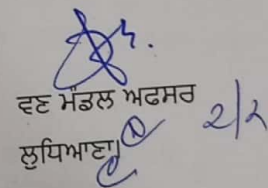 ਵਣ ਮੰਡਲ ਅਫਸਰ
ਲੁਧਿਆਣਾ।
2/2